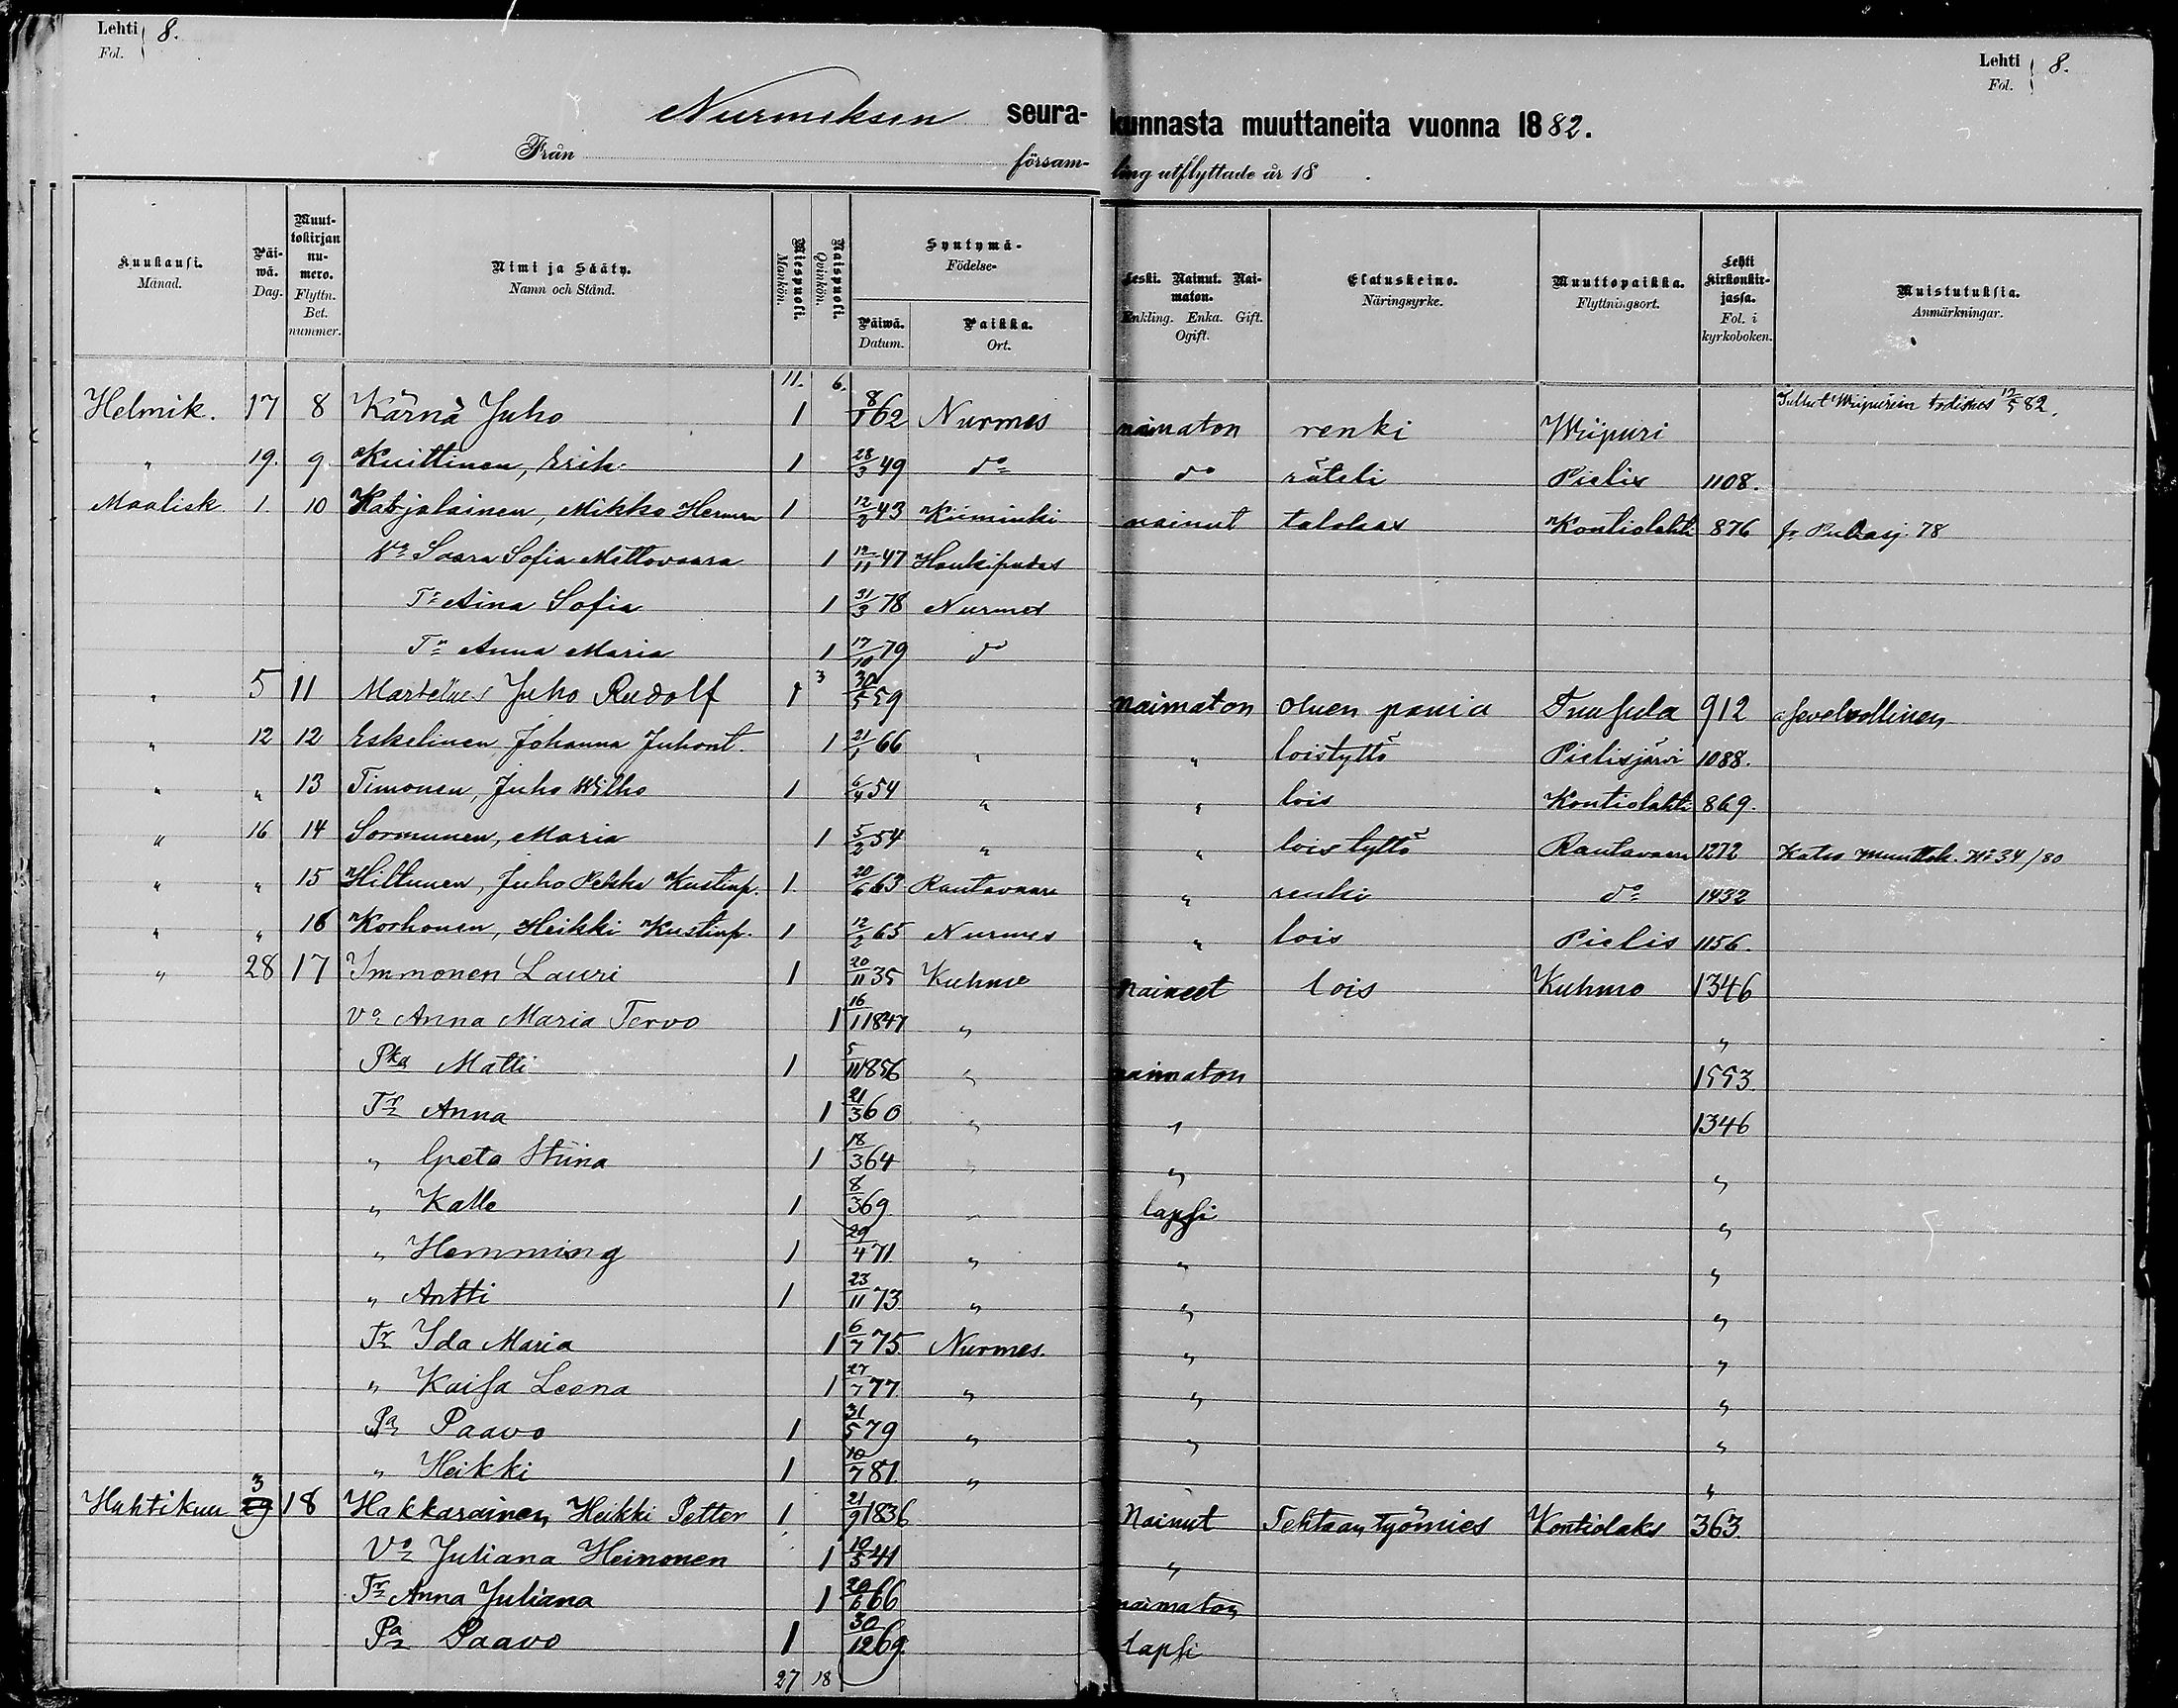 Lehti Fol. 8.
Lehti Fol. 8.
Nurmeksen seurakunnasta muuttaneita vuonna 1882.
Från församling utflyttade år 18 .
Kuukausi. Månad. Päiwä. Dag. Muuttokirjan numero. Flyttn. Bet. nummer. Nimi ja Sääty. Namn och Stånd. Miespuoli. Mankön. Naispuoli. Qvinkön. Syntymä- Födelse- Päiwä. Datum. Paikka. Ort. Leski. Nainut. Naimaton. Enkling. Enka. Gift. Ogift. Elatuskeino. Näringsyrke. Muuttopaikka. Flyttningsort. Lehti kirkonkirjassa. Fol. i kyrkoboken. Muistutuksia. Anmärkningar.
11. 6.
Helmik. 17 8 Kärnä Juho 1 8/1 62 Nurmes naimaton renki Wiipuri 12/5 82.
" 19. 9. Kuittinen, Erik 1 28/3 49 do do räteli Pielis 1108.
Maalisk 1. 10 Karjalainen, Mikko Herman 1 12/2 43 Kiiminki nainut talokas Kontiolahti 876 78
Vo Saara Sofia Mattovaara 1 12/11 47 Haukipudas
Tr Aina Sofia 1 31/3 78 Nurmes
Tr Anna Maria 1 17/10 79 do
3
" 5 11 Martelius Juho Rudolf 1 30/5 59 naimaton oluen pania Tuusula 912 asevelvollinen
" 12 12 Eskelinen Johanna Juhont. 1 21/1 66 " " loistyttö Pielisjärvi 1088.
" " 13 Timonen, Juho Wilho 1 6/4 54 " " lois Kontiolahti 869.
" 16 14 Sormunen, Maria 1 5/2 54 " " lois tyttö Rautavaara 1272 Katso muuttok. No 34/80
" " 15 Hiltunen, Juho Pekka Kustinp. 1. 20/6 63 Rautavaara " renki do 1432
" " 16 Korhonen, Heikki Kustinp. 1 12/2 65 Nurmes " lois Pielis 1156.
" 28 17 Immonen Lauri 1 20/11 35 Kuhmo naineet lois Kuhmo 1346
Vo Anna Maria Tervo 1 16/1 1847 " "
Pka Matti 1 5/11 1856 " naimaton 1553
Tr Anna 1 21/3 60 " " 1346
" Greta Stiina 1 18/3 64 " " "
" Kalle 1 8/3 69 " lapsi "
" Hemming 1 29/4 71. " " "
" Antti 1 23/11 73 " " "
Tr Ida Maria 1 6/7 75. Nurmes. " "
" Kaisa Leena 1 27/7 77 " " "
Pa Paavo 1 31/5 79 " " "
" Heikki 1 10/7 81. " "
Huhtikuu 3 29 18 Hakkarainen Heikki Petter 1 21/9 1836 Nainut Tehtaan työmies Kontiolaks 363
Vo Juliana Heinonen 1 10/5 41 "
Tr Anna Juliana 1 20/6 66 naimaton
Pa Paavo 1 30/12 69. lapsi
27 18